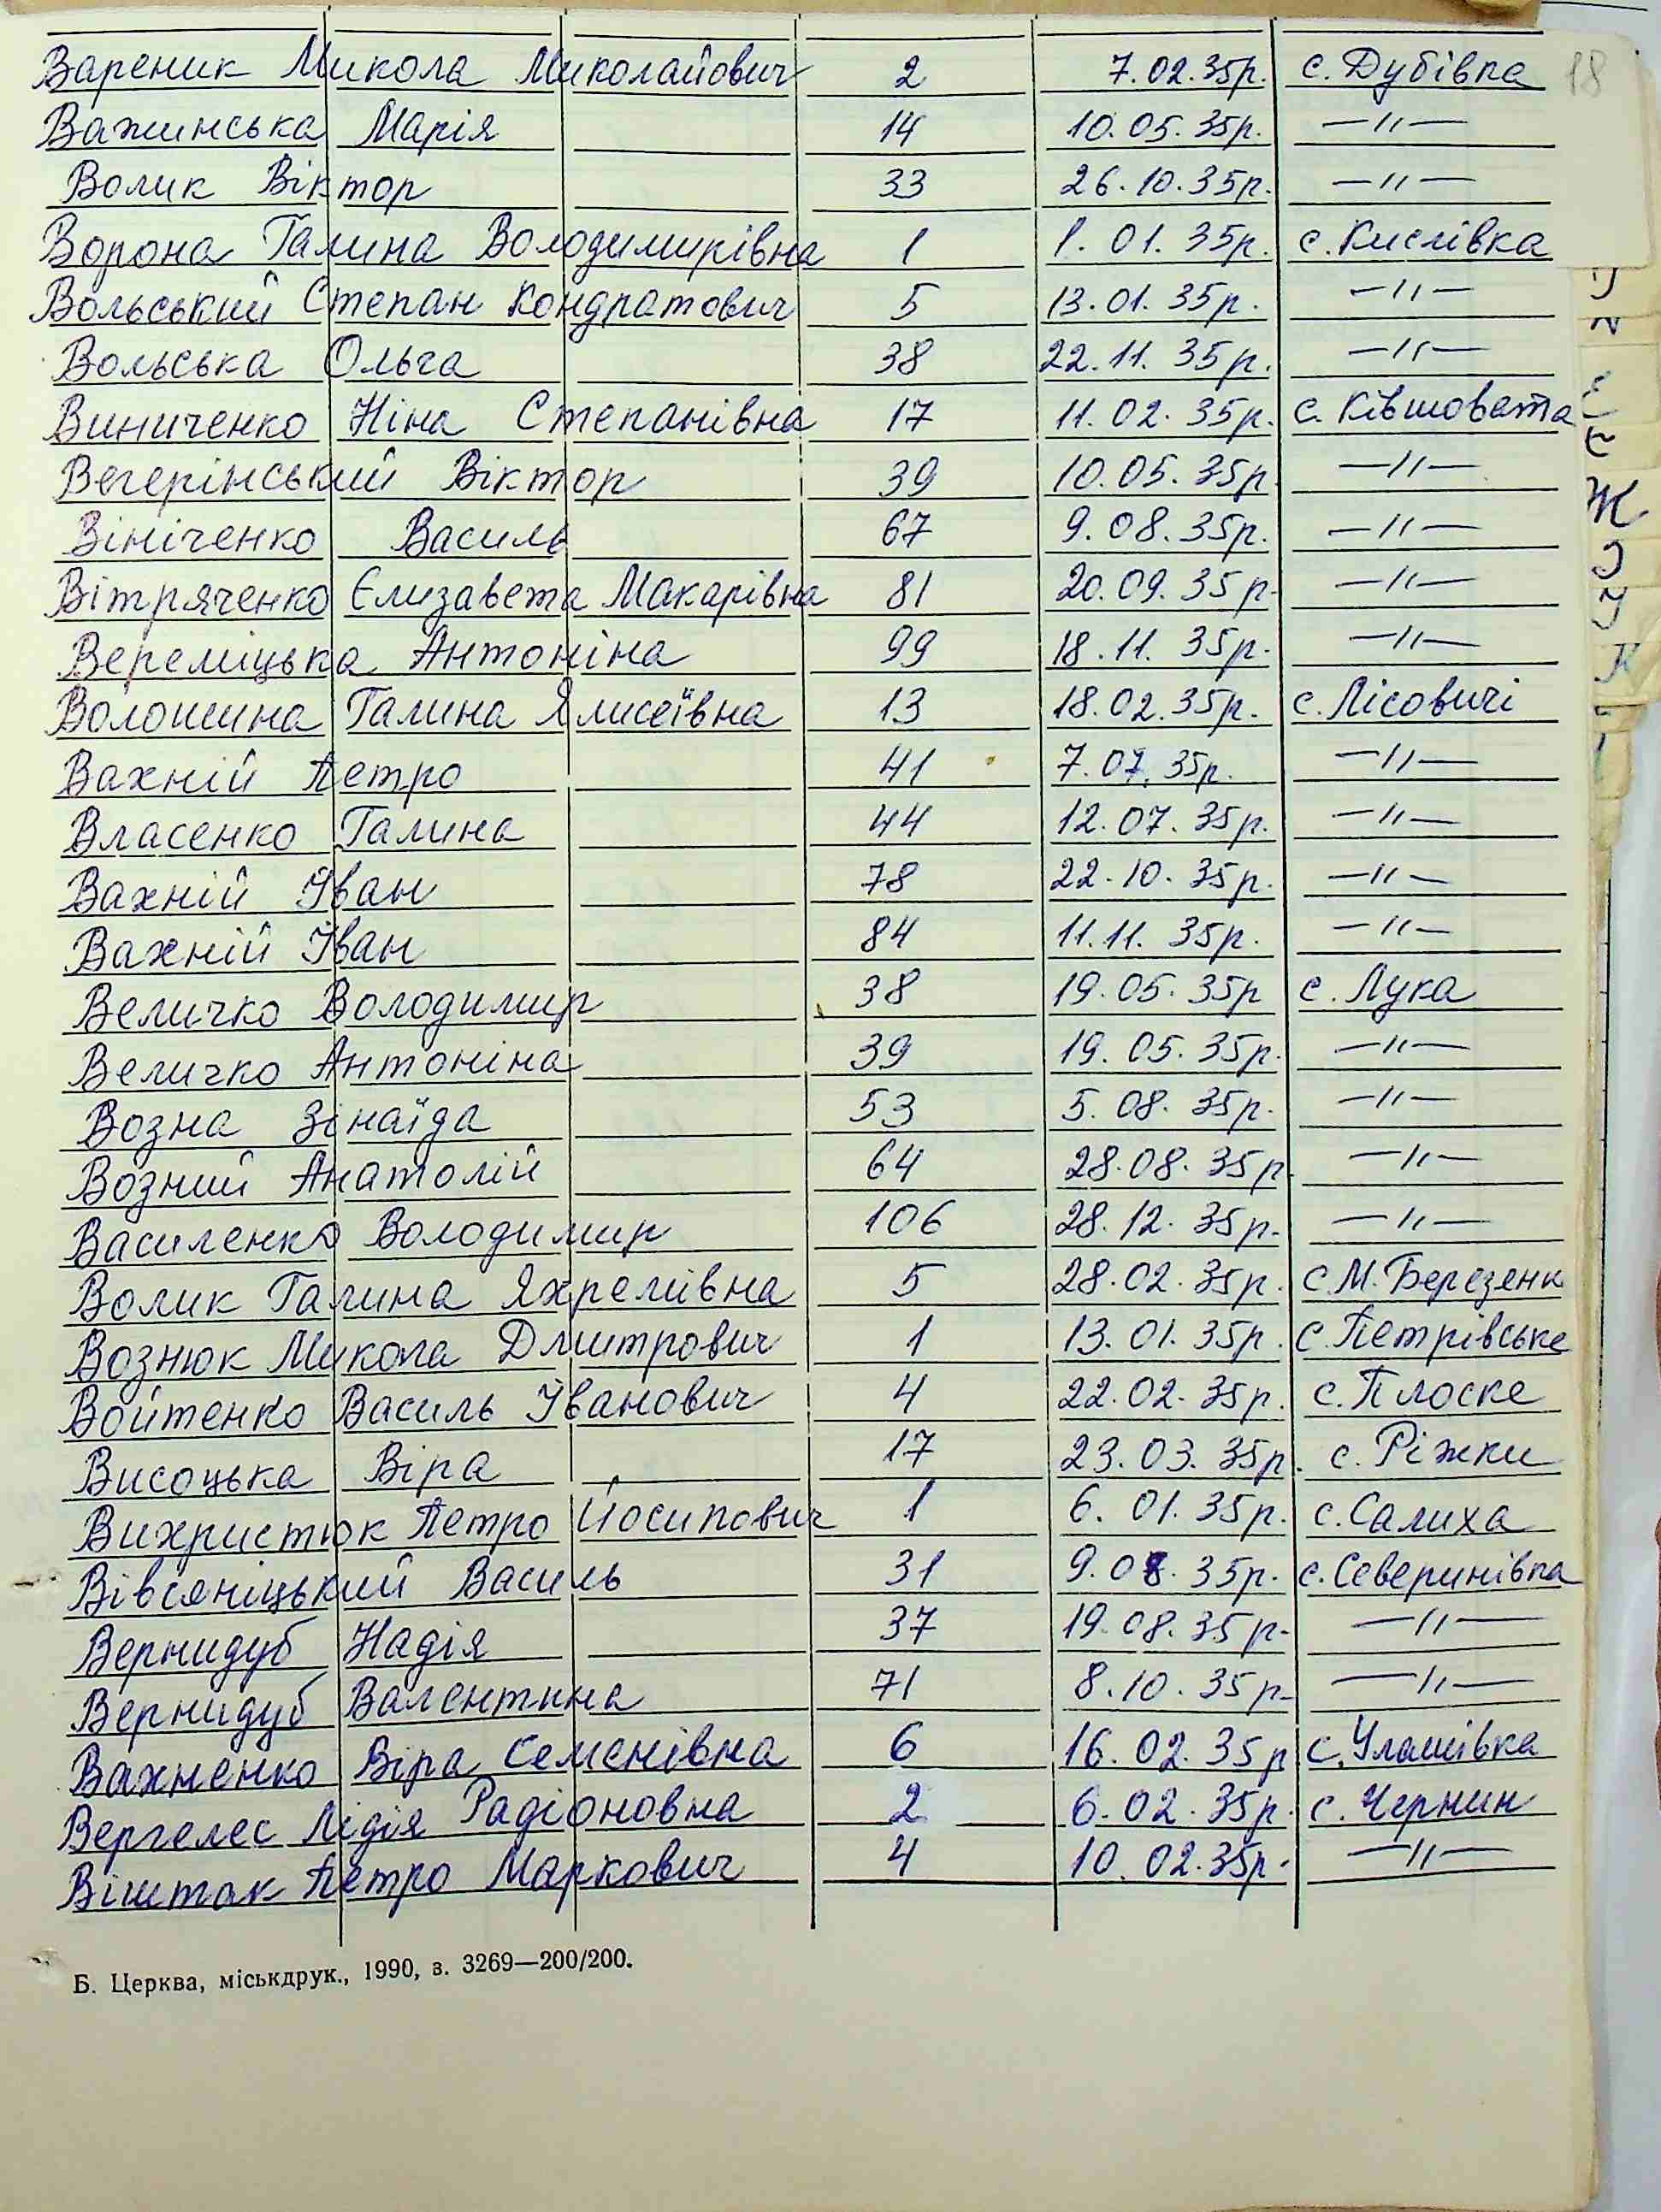 18
Вареник Микола Миколайович 2 7.02.35р. с. Дубівка
Важинська Марія 14 10.05.35р. —〃—
Волик Віктор 33 26.10.35р. —〃—
Ворона Галина Володимирівна 1 1.01.35р. с. Кислівка
Вольський Степан Кондратович 5 13.01.35р. —〃—
Вольська Ольга 38 22.11.35р. —〃—
Виниченко Ніна Степанівна 17 11.02.35р. с. Ківшовата
Вегерінський Віктор 39 10.05.35р —〃—
Вініченко Василь 67 9.08.35р. —〃—
Вітряченко Єлизавета Макарівна 81 20.09.35р. —〃—
Вереміцька Антоніна 99 18.11.35р. —〃—
Волошина Галина Ялисеївна 13 18.02.35р. с. Лісовичі
Вахній Петро 41 7.07.35р. —〃—
Власенко Галина 44 12.07.35р. —〃—
Вахній Іван 78 22.10.35р. —〃—
Вахній Іван 84 11.11.35р. —〃—
Величко Володимир 38 19.05.35р с. Лука
Величко Антоніна 39 19.05.35р. —〃—
Возна Зінаїда 53 5.08.35р. —〃—
Возний Анатолій 64 28.08.35р. —〃—
Василенко Володимир 106 28.12.35р. —〃—
Волик Галина Яхремівна 5 28.02.35р. с М. Березянк
Вознюк Микола Дмитрович 1 13.01.35р. с. Петрівське
Войтенко Василь Іванович 4 22.02.35р. с. Плоске
Висоцька Віра 17 23.03.35р. с. Ріжки
Вихристюк Петро Йосипович 1 6.01.35р. с. Салиха
Вівсяніцький Василь 31 9.08.35р. с. Северинівка
Вернидуб Надія 37 19.08.35р. —〃—
Вернидуб Валентина 71 8.10.35р. —〃—
Вахненко Віра Семенівна 6 16.02.35р с. Улашівка
Вергелес Лідія Радіоновна 2 6.02.35р. с. Чернин
Вішток Петро Маркович 4 10.02.35р. —〃—
Б. Церква, міськдрук., 1990, з. 3269—200/200.
Ж
К